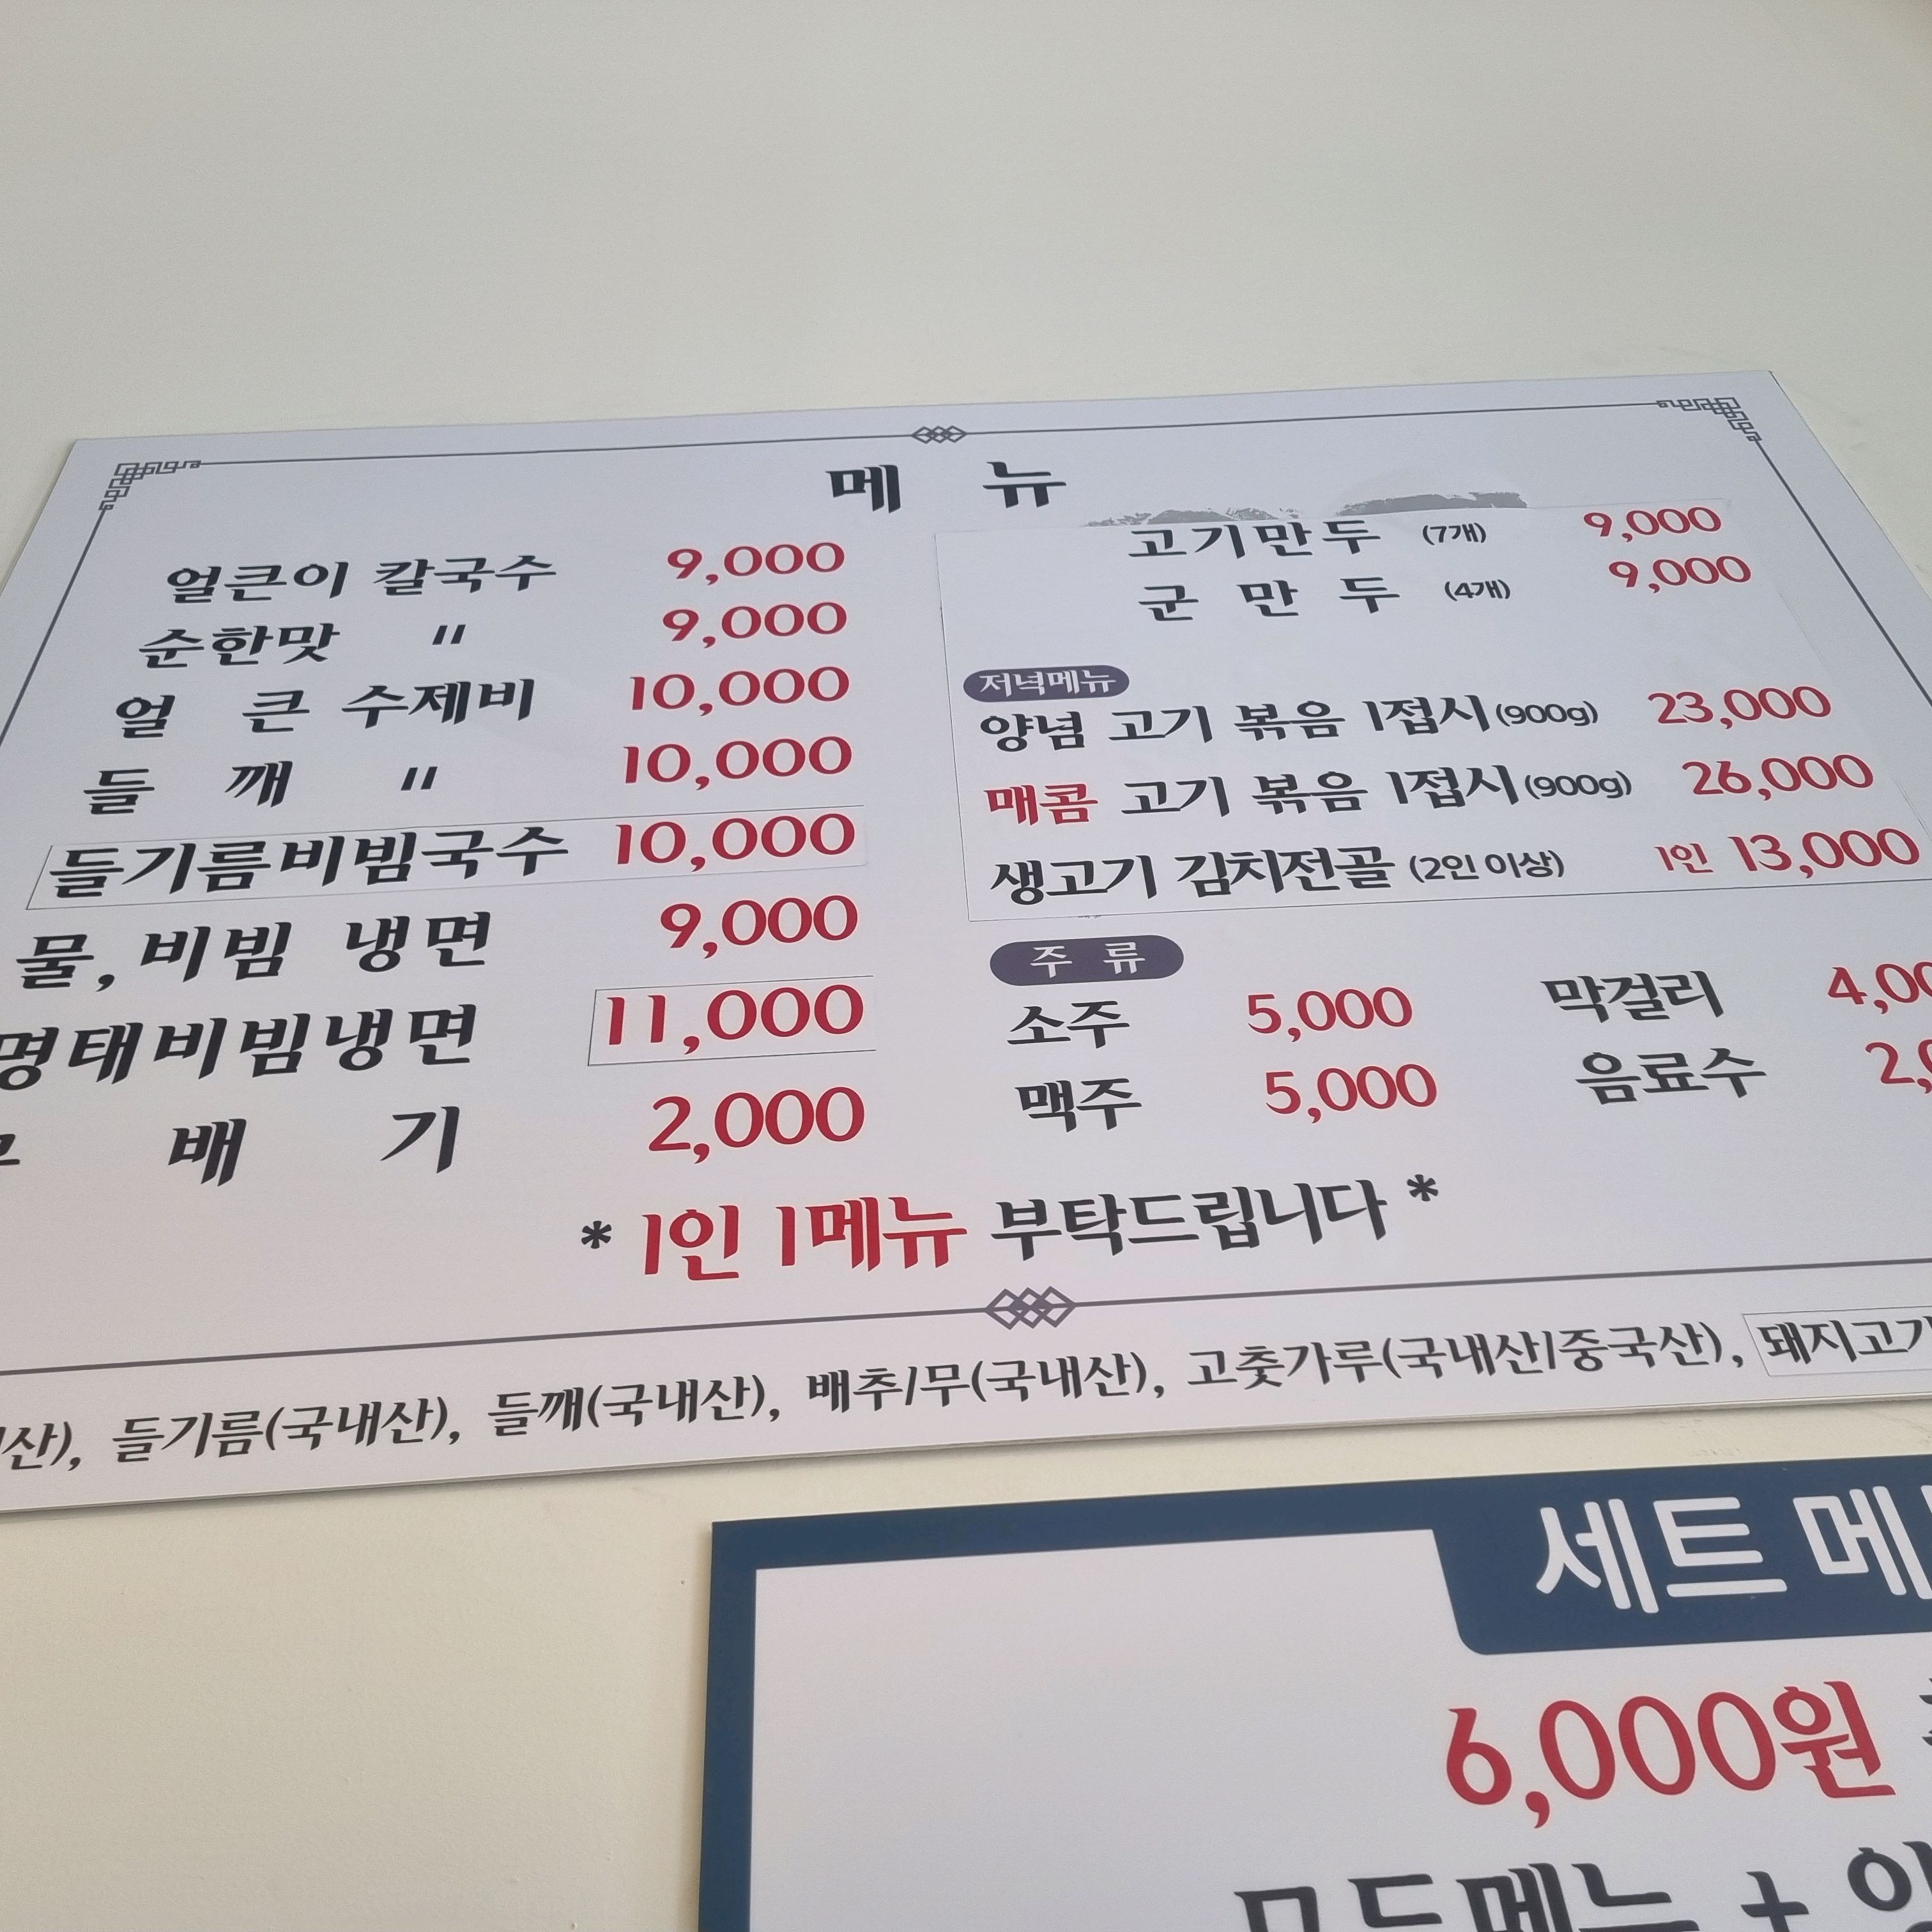 메 뉴
얼큰이 칼국수 9,000
순한맛 〃 9,000
얼 큰 수제비 10,000
들 깨 〃 10,000
들기름비빔국수 10,000
물,비빔 냉면 9,000
명태비빔냉면 11,000
배 기 2,000
고기만두 (7개) 9,000
군 만 두 (4개) 9,000
저녁메뉴
양념 고기 볶음 1접시(900g) 23,000
매콤 고기 볶음 1접시(900g) 26,000
생고기 김치전골 (2인 이상) 1인 13,000
주 류
소주 5,000 막걸리 4,00
맥주 5,000 음료수 2,
* 1인 1메뉴 부탁드립니다 *
산), 들기름(국내산), 들깨(국내산), 배추/무(국내산), 고춧가루(국내산/중국산), 돼지고기
세트 메
6,000원
모든메뉴 +